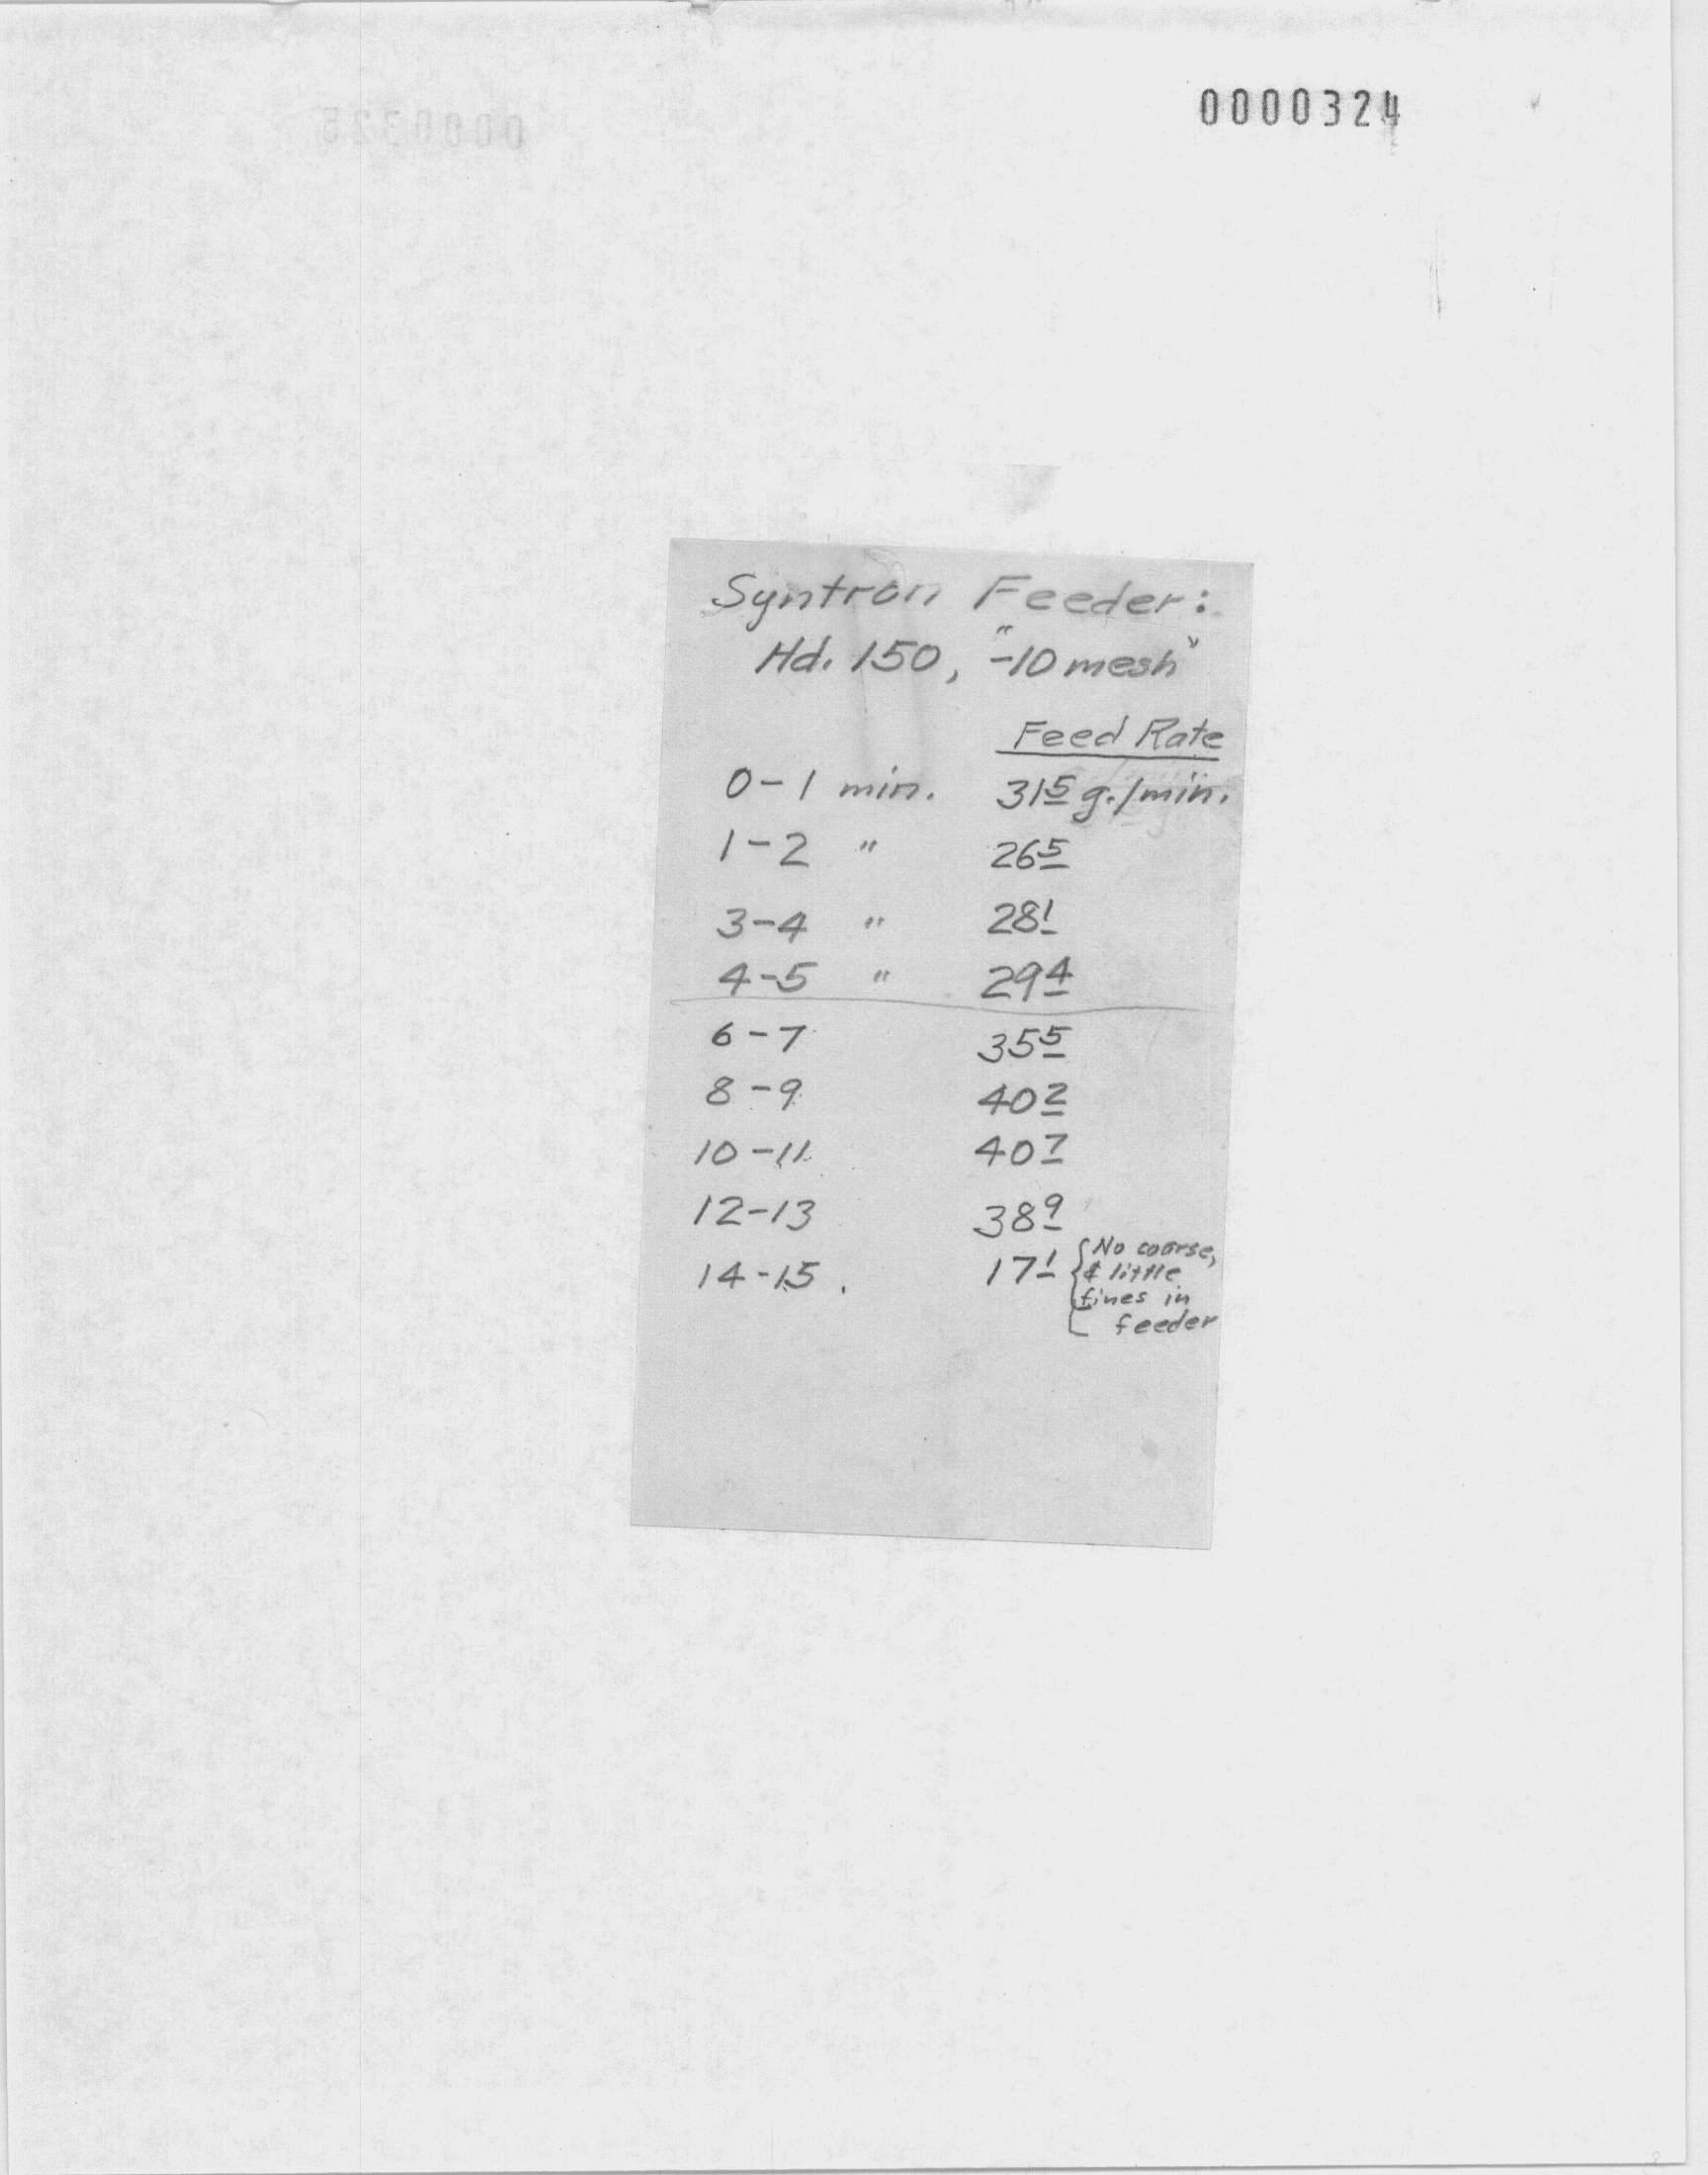 0000324
0000325
Syntron Feeder:
Hd. 150, "-10 mesh"
Feed Rate
0-1 min. 31⁵ g./min.
1-2 " 26⁵
3-4 " 28¹
4-5 " 29⁴
6-7 35⁵
8-9 40²
10-11 40⁷
12-13 38⁹
14-15. 17¹ {No coarse,
& little
fines in
feeder